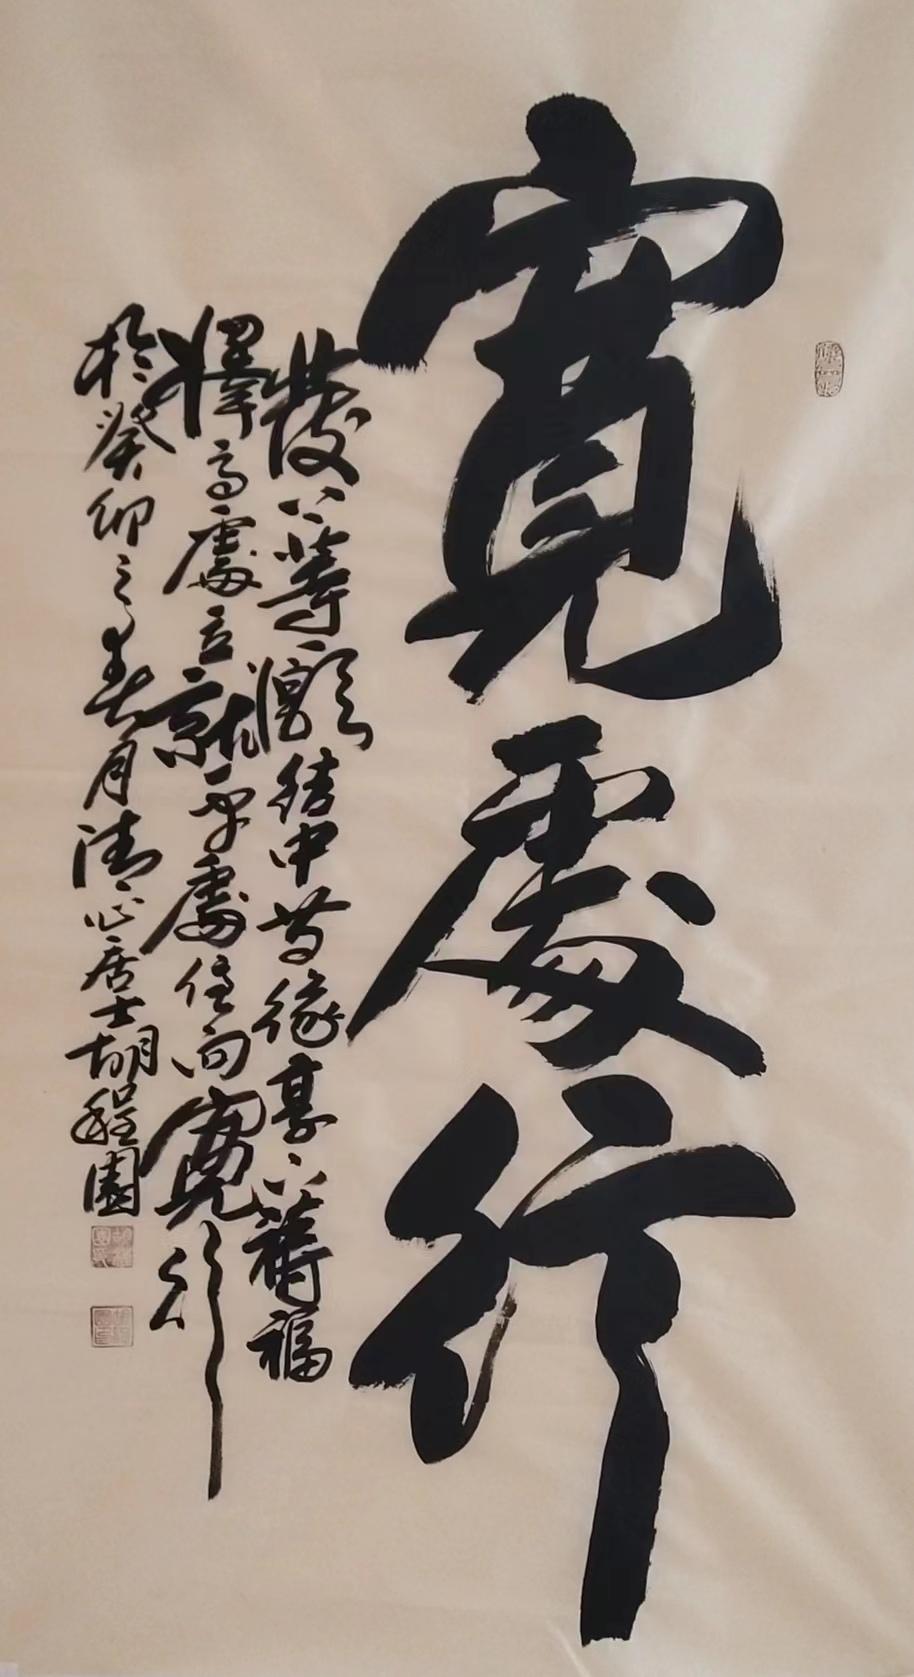 寬處行
發上等願結中等緣享下等福
擇高處立就平處住向寬處行
於癸卯之春月清心居士胡程園